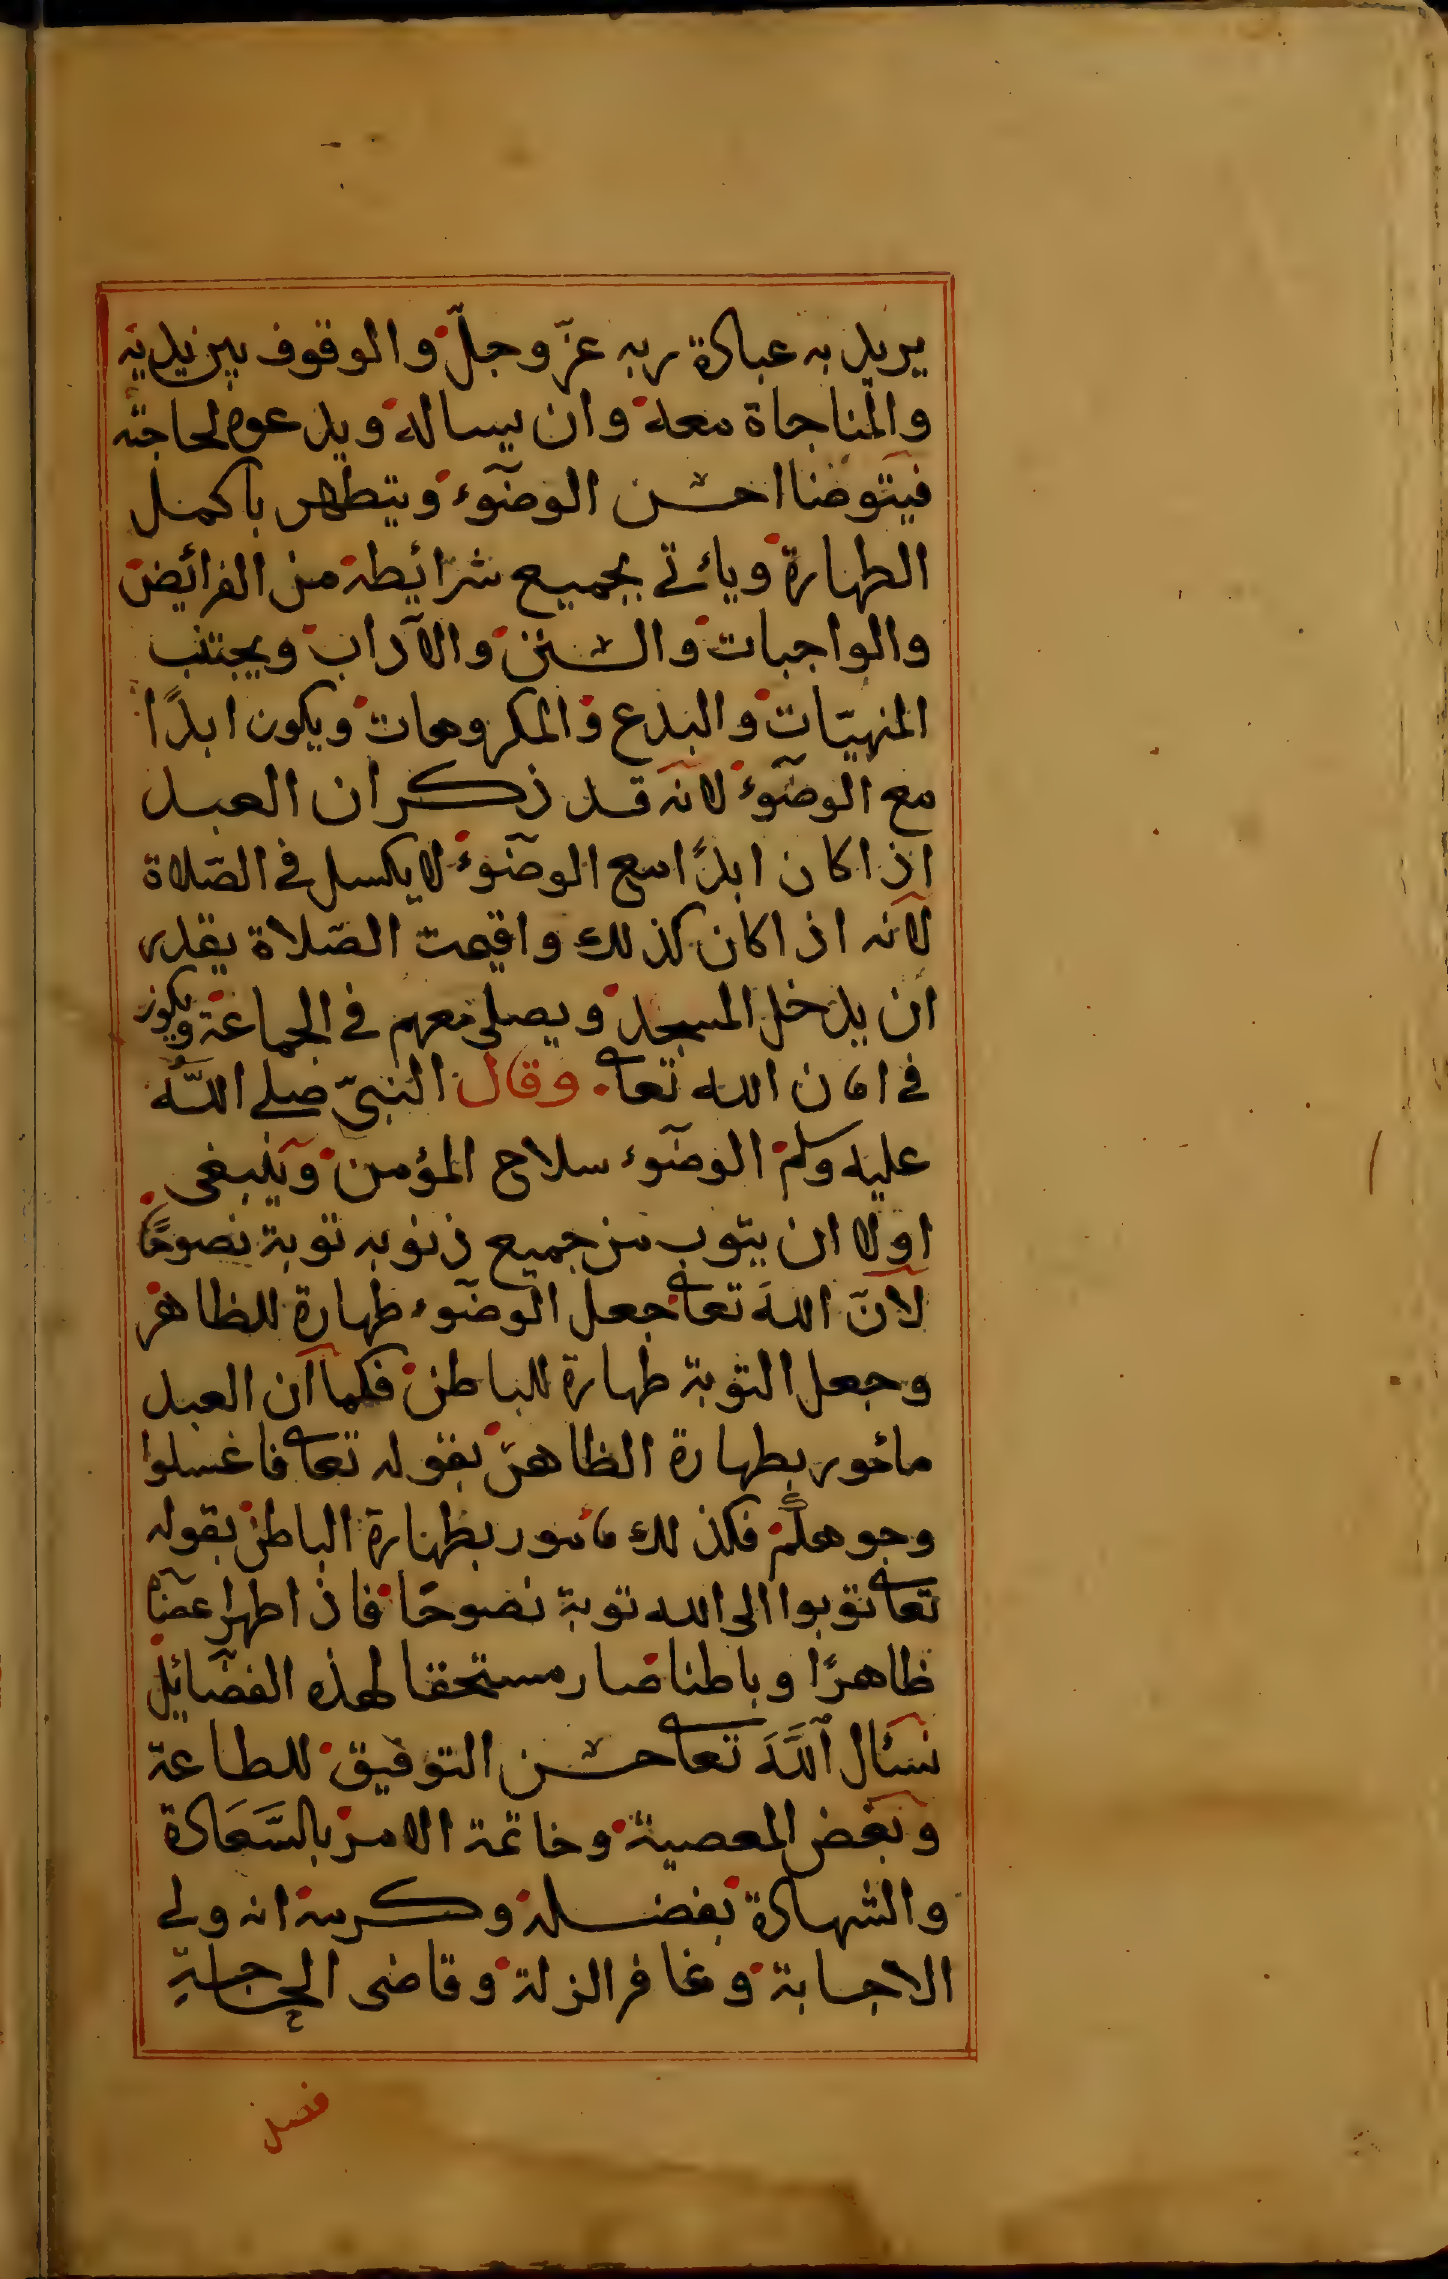 يريد به عبادة ربه عزّ وجلّ والوقوف بين يديه
والمناجاة معه وان يساله ويدعوه لحاجته
فيتوضا احسن الوضوء ويتطهر باكمل
الطهارة ويأتي بجميع شرائطه من الفرائض
والواجبات والسنن والآداب ويجتنب
المنهيّات والبدع والمكروهات ويكون ابدًا
مع الوضوء لانه قد ذكر ان العبد
اذا كان ابدًا مع الوضوء لا يكسل في الصّلاة
لانه اذا كان كذلك واقيمت الصّلاة يقدر
ان يدخل المسجد ويصلي معهم في الجماعة ويكون
في امان الله تعالى وقال النبيّ صلى الله
عليه وسلم الوضوء سلاح المؤمن وينبغي
اولا ان يتوب من جميع ذنوبه توبة نصوحًا
لانّ الله تعالى جعل الوضوء طهارة للظاهر
وجعل التوبة طهارة للباطن فكما ان العبد
مأمور بطهارة الظاهر بقوله تعالى فاغسلوا
وجوهكم فكذلك مأمور بطهارة الباطن بقوله
تعالى توبوا الى الله توبة نصوحًا فاذا طهر اعضآه
ظاهرًا وباطنا صار مستحقا لهذه الفضائل
نسئال اللّٰه تعالى حسن التوفيق للطاعة
وبغض المعصية وخاتمة الامر بالسَّعَادة
والشهادة بفضله وكرمه انه ولي
الاجابة وغافر الزلة وقاضى الحاجة
فصل